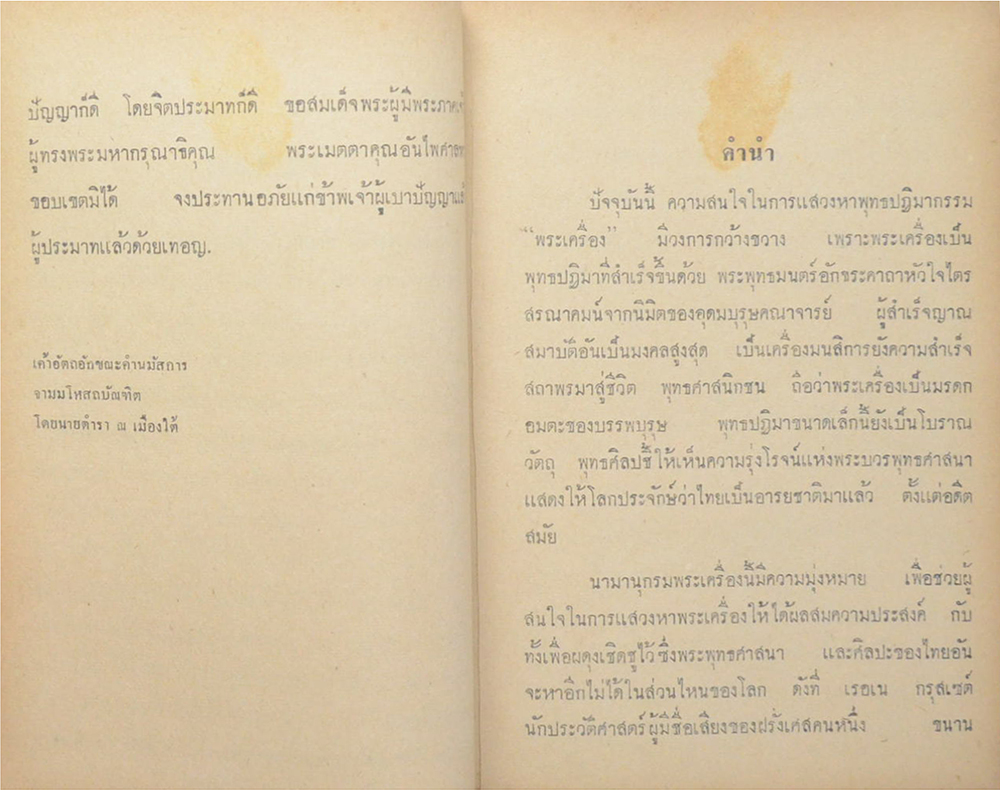 ปัญญาก็ดี โดยจิตประมาทก็ดี ขอสมเด็จพระผู้มีพระภาคเจ้
ผู้ทรงพระมหากรุณาธิคุณ พระเมตตาคุณอันไพศาลห
ขอบเขตมิได้ จงประทานอภัยแก่ข้าพเจ้าผู้เบาปัญญาแล
ผู้ประมาทแล้วด้วยเทอญ.
เค้าอัตถอักขณะคำนมัสการ
จามมโหสถบัณฑิต
โดยนายดำรา ณ เมืองใต้
คำนำ
ปัจจุบันนี้ ความสนใจในการแสวงหาพุทธปฏิมากรรม
“พระเครื่อง” มีวงการกว้างขวาง เพราะพระเครื่องเป็น
พุทธปฏิมาที่สำเร็จขึ้นด้วย พระพุทธมนตร์อักขระคาถาหัวใจไตร
สรณาคมน์จากนิมิตของอุดมบุรุษคณาจารย์ ผู้สำเร็จญาณ
สมาบัติอันเป็นมงคลสูงสุด เป็นเครื่องมนสิการยังความสำเร็จ
สถาพรมาสู่ชีวิต พุทธศาสนิกชน ถือว่าพระเครื่องเป็นมรดก
อมตะของบรรพบุรุษ พุทธปฏิมาขนาดเล็กนี้ยังเป็นโบราณ
วัตถุ พุทธศิลปชี้ให้เห็นความรุ่งโรจน์แห่งพระบวรพุทธศาสนา
แสดงให้โลกประจักษ์ว่าไทยเป็นอารยชาติมาแล้ว ตั้งแต่อดีต
สมัย
นามานุกรมพระเครื่องนี้มีความมุ่งหมาย เพื่อช่วยผู้
สนใจในการแสวงหาพระเครื่องให้ได้ผลสมความประสงค์ กับ
ทั้งเพื่อผดุงเชิดชูไว้ซึ่งพระพุทธศาสนา และศิลปะของไทยอัน
จะหาอีกไม่ได้ในส่วนไหนของโลก ดังที่ เรอเน กรุสเซต์
นักประวัติศาสตร์ผู้มีชื่อเสียงของฝรั่งเศสคนหนึ่ง ขนาน